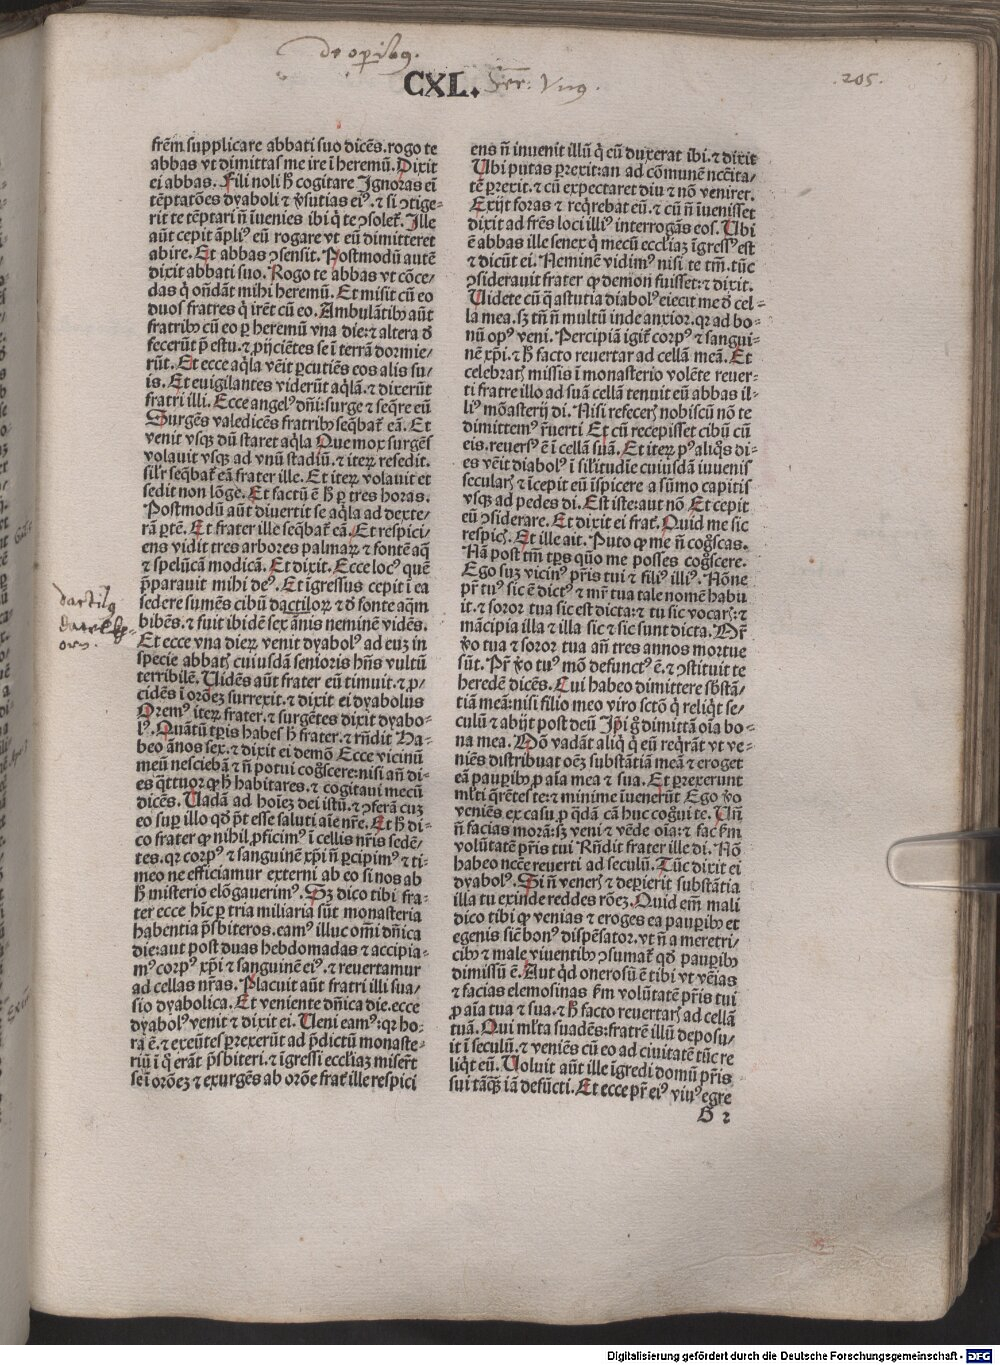 CXL.
205.
frēm supplicare abbati suo dicēs. rogo te
abbas vt dimittas me ire ī heremū. Dixit
ei abbas. Fili noli h̄ cogitare Ignoras eī
tēptatōes dyaboli ⁊ v̄sutias eiꝰ. ⁊ si ↄtige-
rit te tēptari n̄ īuenies ibi q̇ te ↄsoleṫ. Ille
aūt cepit āpliꝰ eū rogare vt eū dimitteret
abire. Et abbas ↄsensit. Postmodū autē
dixit abbati suo. Rogo te abbas vt cōce-
das q̇ oñdāt mihi heremū. Et misit cū eo
duos fratres q̇ irēt cū eo. Ambulātibꝰ aūt
fratribꝰ cū eo ꝑ heremū vna die: ⁊ altera d̄
fecerūt p̄ estu. ⁊ ꝓijciētes se ī terrā dormie-
rūt. Et ecce aq̄la vēit ꝑcutiēs eos alis su-
is. Et euigilantes viderūt aq̄lā. ⁊ dixerūt
fratri illi. Ecce angelꝰ dn̄i: surge ⁊ seq̄re eū
Surgēs valedicēs fratribꝰ seq̄baṫ eā. Et
venit vsqꝫ dū staret aq̄la Que mox surgēs
volauit vsqꝫ ad vnū stadiū. ⁊ iteꝝ resedit.
silr̄ seq̄baṫ eā frater ille. Et iteꝝ volauit et
sedit non lōge. Et factū ē h̄ ꝑ tres horas.
Postmodū aūt diuertit se aq̄la ad dexte-
rā ꝑtē. Et frater ille seq̄baṫ eā. Et respici-
ens vidit tres arbores palmaꝝ ⁊ fontē aq̄
⁊ spelūcā modicā. Et dixit. Ecce locꝰ quē
p̄parauit mihi deꝰ. Et īgressus cepit ī ea
sedere sumēs cibū dactiloꝝ ⁊ d̄ fonte aq̄m
bibēs. ⁊ fuit ibidē sex ānis neminē vidēs.
Et ecce vna dieꝝ venit dyabolꝰ ad euꝫ in
specie abbatꝭ cuiusdā senioris hn̄s vultū
terribilē. Uidēs aūt frater eū timuit. ⁊ ꝓ-
cidēs ī orōeꝫ surrexit. ⁊ dixit ei dyabolus
Oremꝰ iteꝝ frater. ⁊ surgētes dixit dyabo-
lꝰ. Quātū tp̄ris habes h̄ frater. ⁊ rn̄dit Ha-
beo ānos sex. ⁊ dixit ei demō Ecce vicinū
meū nesciebā ⁊ n̄ potui cogͦscere: nisi añ di-
es q̄ttuor ꝙ h̄ habitares. ⁊ cogitaui mecū
dicēs. Uadā ad hoieꝫ dei istū. ⁊ ↄferā cuꝫ
eo suꝑ illo qd̄ p̄t esse saluti aīe nr̄e. Et h̄ di-
co frater ꝙ nihil ꝓficimꝰ ī cellis nr̄is sedē-
tes. qꝛ corpꝰ ⁊ sanguinē xp̄i n̄ ꝑcipimꝰ ⁊ ti-
meo ne efficiamur externi ab eo si nos ab
h̄ misterio elōgauerimꝰ. Sꝫ dico tibi fra-
ter ecce hīc ꝑ tria miliaria sūt monasteria
habentia p̄sbiteros. eamꝰ illuc om̄i dn̄ica
die: aut post duas hebdomadas ⁊ accipia-
mꝰ corpꝰ xp̄i ⁊ sanguinē eiꝰ. ⁊ reuertamur
ad cellas nr̄as. Placuit aūt fratri illi sua-
sio dyabolica. Et veniente dn̄ica die. ecce
dyabolꝰ venit ⁊ dixit ei. Ueni eamꝰ: qꝛ ho-
ra ē. ⁊ exeūtes ꝑrexerūt ad p̄dictū monaste-
riū ī q̇ erāt p̄sbiteri. ⁊ īgressi eccl̄iaꝫ miserṫ
se ī orōeꝫ ⁊ exurgēs ab orōe fraṫ ille respici
ens n̄ inuenit illū q̇ eū duxerat ibi. ⁊ dixit
Ubi putas ꝑrexit: an ad cōmunē nccīta-
tē ꝑrexit. ⁊ cū expectaret diu ⁊ nō veniret.
Exijt foras ⁊ reqͥrebat eū. ⁊ cū n̄ īuenisset
dixit ad frēs loci illiꝰ interrogās eos. Ubi
ē abbas ille senex q̇ mecū eccl̄iaꝫ īgressꝰ est
⁊ dicūt ei. Neminē vidimꝰ nisi te tm̄. tūc
ↄsiderauit frater ꝙ demon fuisset: ⁊ dixit.
Uidete cū q̄ astutia diabolꝰ eiecit me d̄ cel-
la mea. sꝫ tn̄ n̄ multū inde anxior. qꝛ ad bo-
nū opꝰ veni. Percipiā igiṫ corpꝰ ⁊ sangui-
nē xp̄i. ⁊ h̄ facto reuertar ad cellā meā. Et
celebratꝭ missis ī monasterio volēte reuer-
ti fratre illo ad suā cellā tenuit eū abbas il-
liꝰ mōasterij di. Nisi refecerꝭ nobiscū nō te
dimittemꝰ r̄uerti Et cū recepisset cibū cū
eis. reuersꝰ ē ī cellā suā. Et iteꝝ pꝰ aliqͦs di-
es vēit diabolꝰ ī sil̄itudīe cuiusdā iuuenis
secularꝭ ⁊ īcepit eū īspicere a sūmo capitis
vsqꝫ ad pedes di. Est iste: aut nō Et cepit
eū ↄsiderare. Et dixit ei fraṫ. Quid me sic
respicꝭ. Et ille ait. Puto ꝙ me n̄ cogͦscas.
Nā post tm̄ tp̄s quō me posses cogͦscere.
Ego suꝫ vicinꝰ pr̄is tui ⁊ filiꝰ illiꝰ. Nōne
pr̄ tuꝰ sic ē dictꝰ ⁊ mr̄ tua tale nomē habu
it. ⁊ soror tua sic est dicta: ⁊ tu sic vocarꝭ: ⁊
mācipia illa ⁊ illa sic ⁊ sic sunt dicta. Mr̄
v̄o tua ⁊ soror tua añ tres annos mortue
sūt. Pr̄ v̄o tuꝰ mō defunctꝰ ē. ⁊ ↄstituit te
heredē dicēs. Cui habeo dimittere sb̄stā-
tiā meā: nisi filio meo viro scto q̇ reliqͥt se-
culū ⁊ abijt post deū Ip̄i g̊ dimittā oīa bo-
na mea. Mō vadāt aliq̇ q̇ eū reqͥrāt vt ve-
niēs distribuat oēꝫ substātiā meā ⁊ eroget
eā pauꝑibꝰ ꝓ aīa mea ⁊ sua. Et ꝑrexerunt
ml̄ti q̄rētes te: ⁊ minime īuenerūt Ego v̄o
veniēs ex casu ꝓ q̄dā cā huc cogͦui te. Uñ
n̄ facias morā: sꝫ veni ⁊ vēde oīa: ⁊ fac ẜm
volūtatē pr̄is tui Rn̄dit frater ille di. Nō
habeo nccē reuerti ad seculū. Tūc dixit ei
dyabolꝰ. Si n̄ venerꝭ ⁊ deꝑierit substātia
illa tu exinde reddes rōeꝫ. Quid em̄ mali
dico tibi ꝙ venias ⁊ eroges ea pauꝑibꝰ et
egenis sic̄ bonꝰ dispēsator. vt n̄ a meretri-
cibꝰ ⁊ male viuentibꝰ ↄsumaṫ qd̄ pauꝑibꝰ
dimissū ē. Aut qͥd onerosū ē tibi vt vēias
⁊ facias elemosinas ẜm volūtatē pr̄is tui
ꝓ aīa tua ⁊ sua. ⁊ h̄ facto reuertarꝭ ad cellā
tuā. Qui ml̄ta suadēs: fratrē illū deposu-
it ī seculū. ⁊ veniēs cū eo ad ciuitatē tūc re
liqͥt eū. Uoluit aūt ille īgredi domū pr̄is
sui tāq̄ꝫ iā defūcti. Et ecce pr̄ eiꝰ viuꝰ egre
G 2
Digitalisierung gefördert durch die Deutsche Forschungsgemeinschaft - DFG